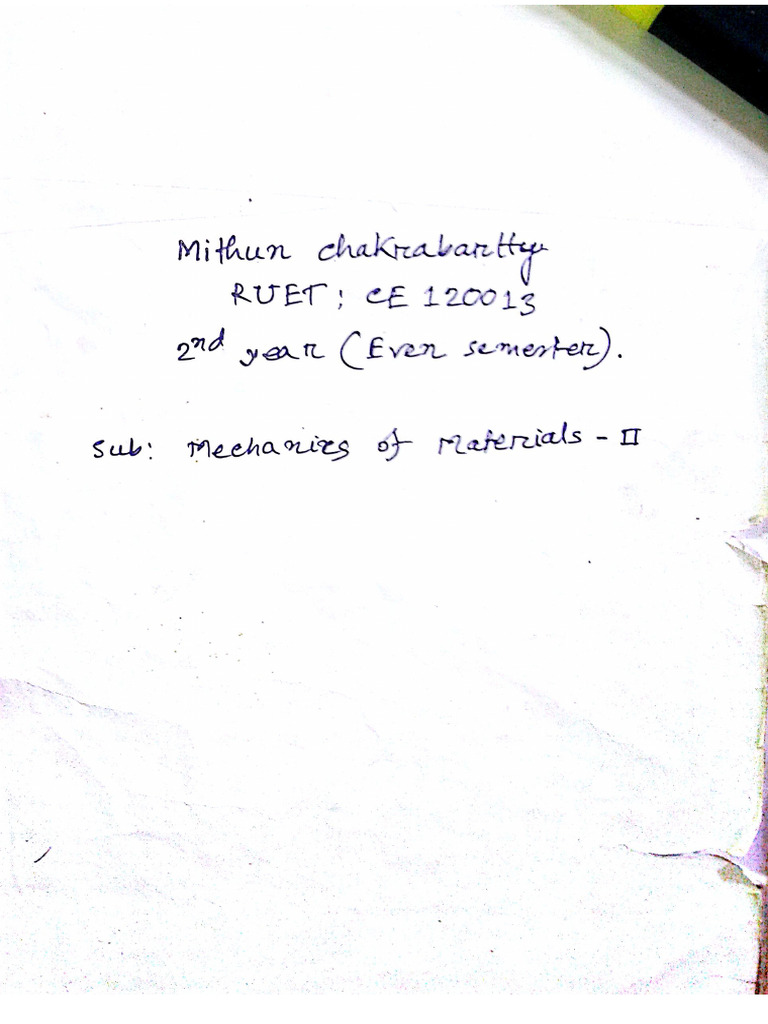 Mithun Chakrabartty
RUET; CE 120013
2nd year (Even semester).
Sub: Mechanics of Materials - II